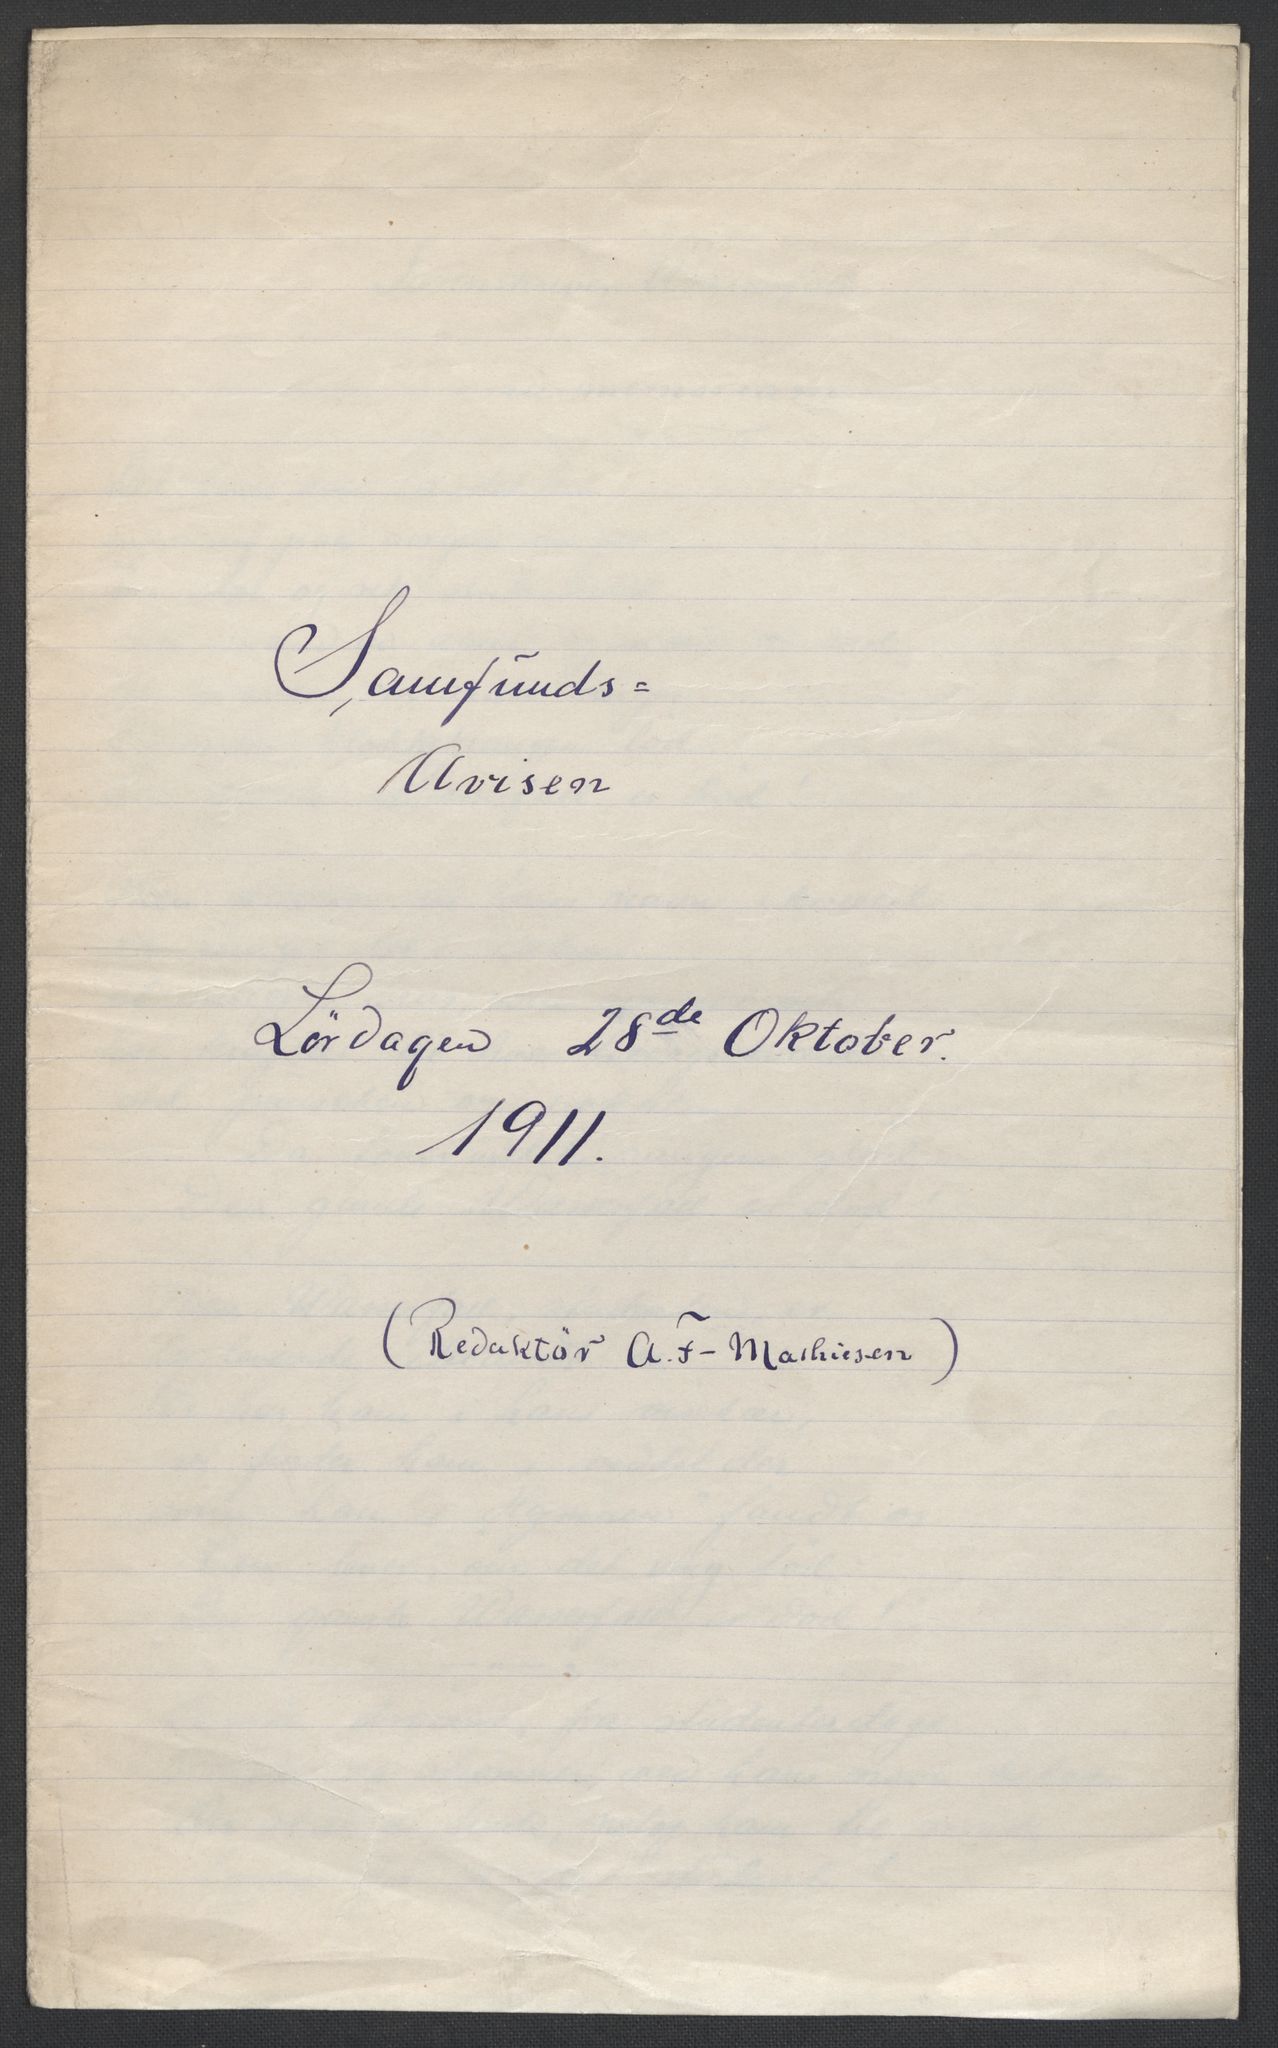 Samfunds=
Avisen
Lördagen 28de Oktober.
1911.
(Redaktör A.F- Mathiesen)